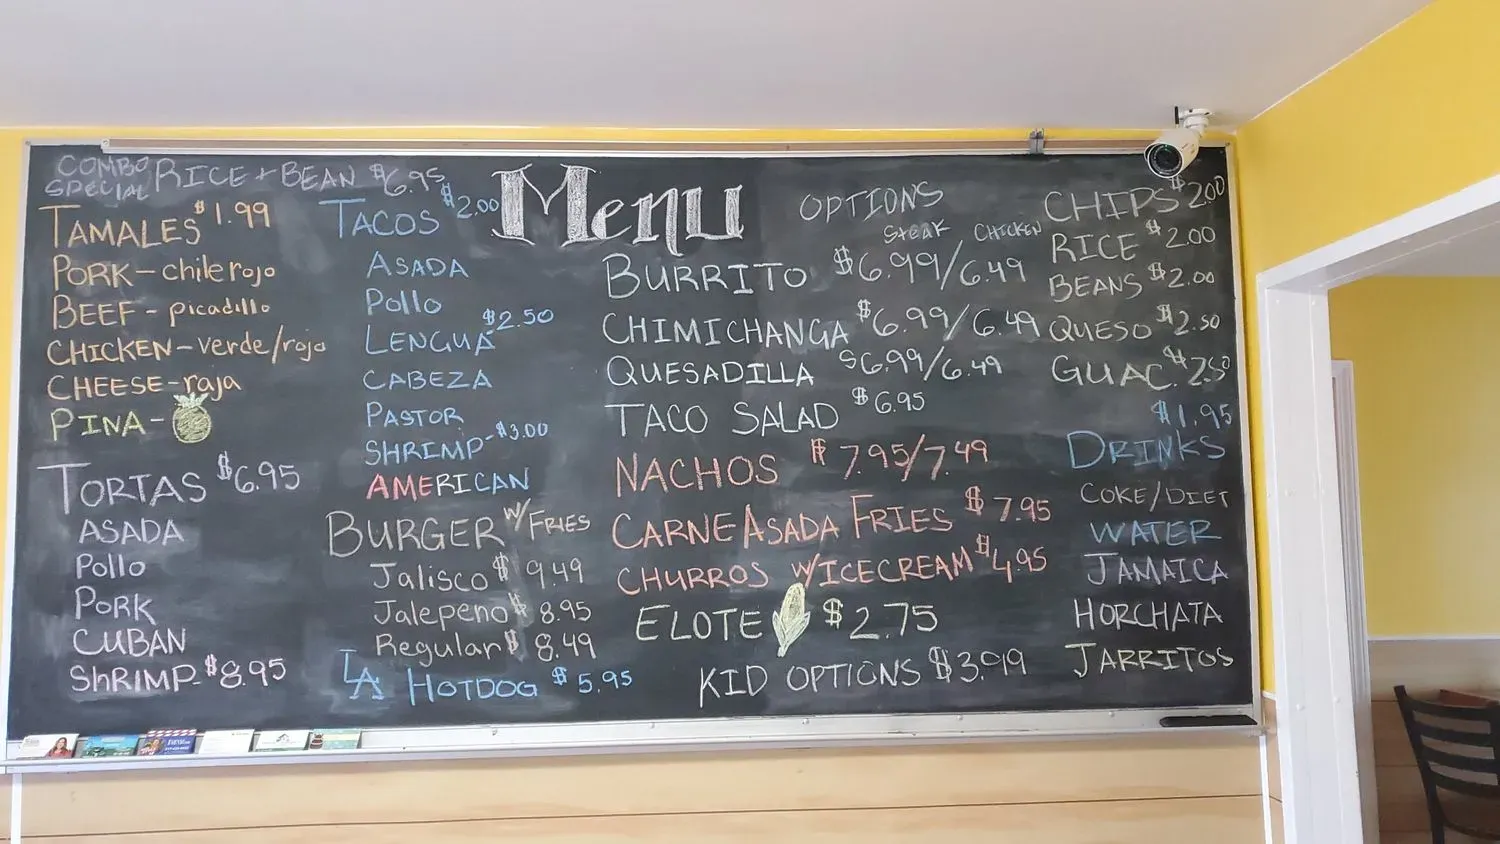 COMBO SPECIAL RICE + BEAN $6.95
TAMALES $1.99
PORK - chile rojo
BEEF - picadillo
CHICKEN - verde/rojo
CHEESE - raja
PINA -
TORTAS $6.95
ASADA
Pollo
PORK
CUBAN
ShRIMP - $8.95
TACOS $2.00
ASADA
Pollo
LENGUA $2.50
CABEZA
PASTOR
SHRIMP - $3.00
AMERICAN
BURGER W/ FRIES
Jalisco $9.49
Jalepeno $8.95
Regular $8.49
LA HOTDOG $5.95
Menu
OPTIONS
STEAK CHICKEN
BURRITO $6.99/6.49
CHIMICHANGA $6.99/6.49
QUESADILLA $6.99/6.49
TACO SALAD $6.95
NACHOS $7.95/7.49
CARNE ASADA FRIES $7.95
CHURROS W/ICECREAM $4.95
ELOTE $2.75
KID OPTIONS $3.99
CHIPS $2.00
RICE $2.00
BEANS $2.00
QUESO $2.50
GUAC. $2.50
$1.95
DRINKS
COKE/DIET
WATER
JAMAICA
HORCHATA
JARRITOS